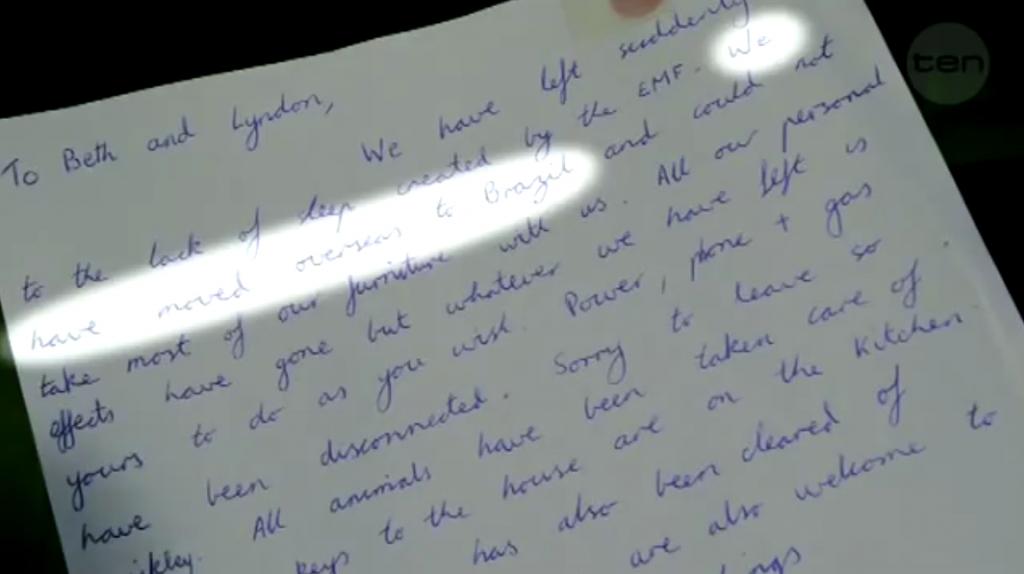 ten
To Beth and Lyndon,
We have left suddenly
to the lack of sleep created by the EMF. We
have moved overseas to Brazil and could not
take most of our furniture with us. All our personal
effects have gone but whatever we have left is
yours to do as you wish. Power, phone + gas
have been disconnected. Sorry to leave so
All animals have been taken care of
keys to the house are on the kitchen
has also been cleared of
are also welcome to